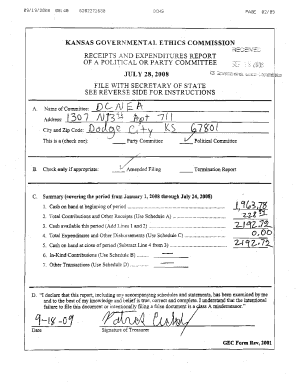 PAGE 02/05
KANSAS GOVERNMENTAL ETHICS COMMISSION
RECEIVED
RECEIPTS AND EXPENDITURES REPORT
OF A POLITICAL OR PARTY COMMITTEE
JULY 28, 2008
FILE WITH SECRETARY OF STATE
SEE REVERSE SIDE FOR INSTRUCTIONS
A. Name of Committee: DCNEA
Address: 1307 Apt 711
City and Zip Code: Dodge City KS 67801
This is a (check one): Party Committee ✓ Political Committee
B. Check only if appropriate: ✓ Amended Filing Termination Report
C. Summary (covering the period from January 1, 2008 through July 24, 2008)
1. Cash on hand at beginning of period 1,963.78
2. Total Contributions and Other Receipts (Use Schedule A)
3. Cash available this period (Add Lines 1 and 2) 2192.73
4. Total Expenditures and Other Disbursements (Use Schedule C) 0.00
5. Cash on hand at close of period (Subtract Line 4 from 3) 2192.73
6. In-Kind Contributions (Use Schedule B)
7. Other Transactions (Use Schedule D)
D. "I declare that this report, including any accompanying schedules and statements, has been examined by me
and to the best of my knowledge and belief is true, correct and complete. I understand that the intentional
failure to file this document or intentionally filing a false document is a class A misdemeanor."
9-18-09
Date Signature of Treasurer
GEC Form Rev, 2001